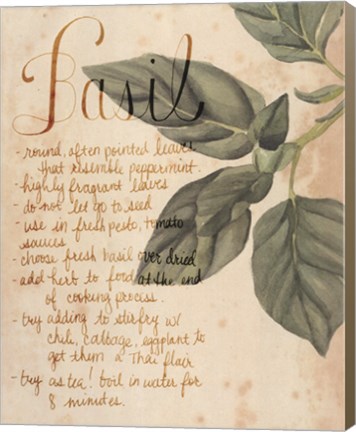 Basil
- round, often pointed leaves
that resemble peppermint.
- highly fragrant leaves
- do not let go to seed
- use in fresh pesto, tomato
sauces
- choose fresh basil over dried
- add herb to food at the end
of cooking process.
- try adding to stirfry w/
chili, cabbage, eggplant to
get them a Thai flair
- try as tea! boil in water for
8 minutes.